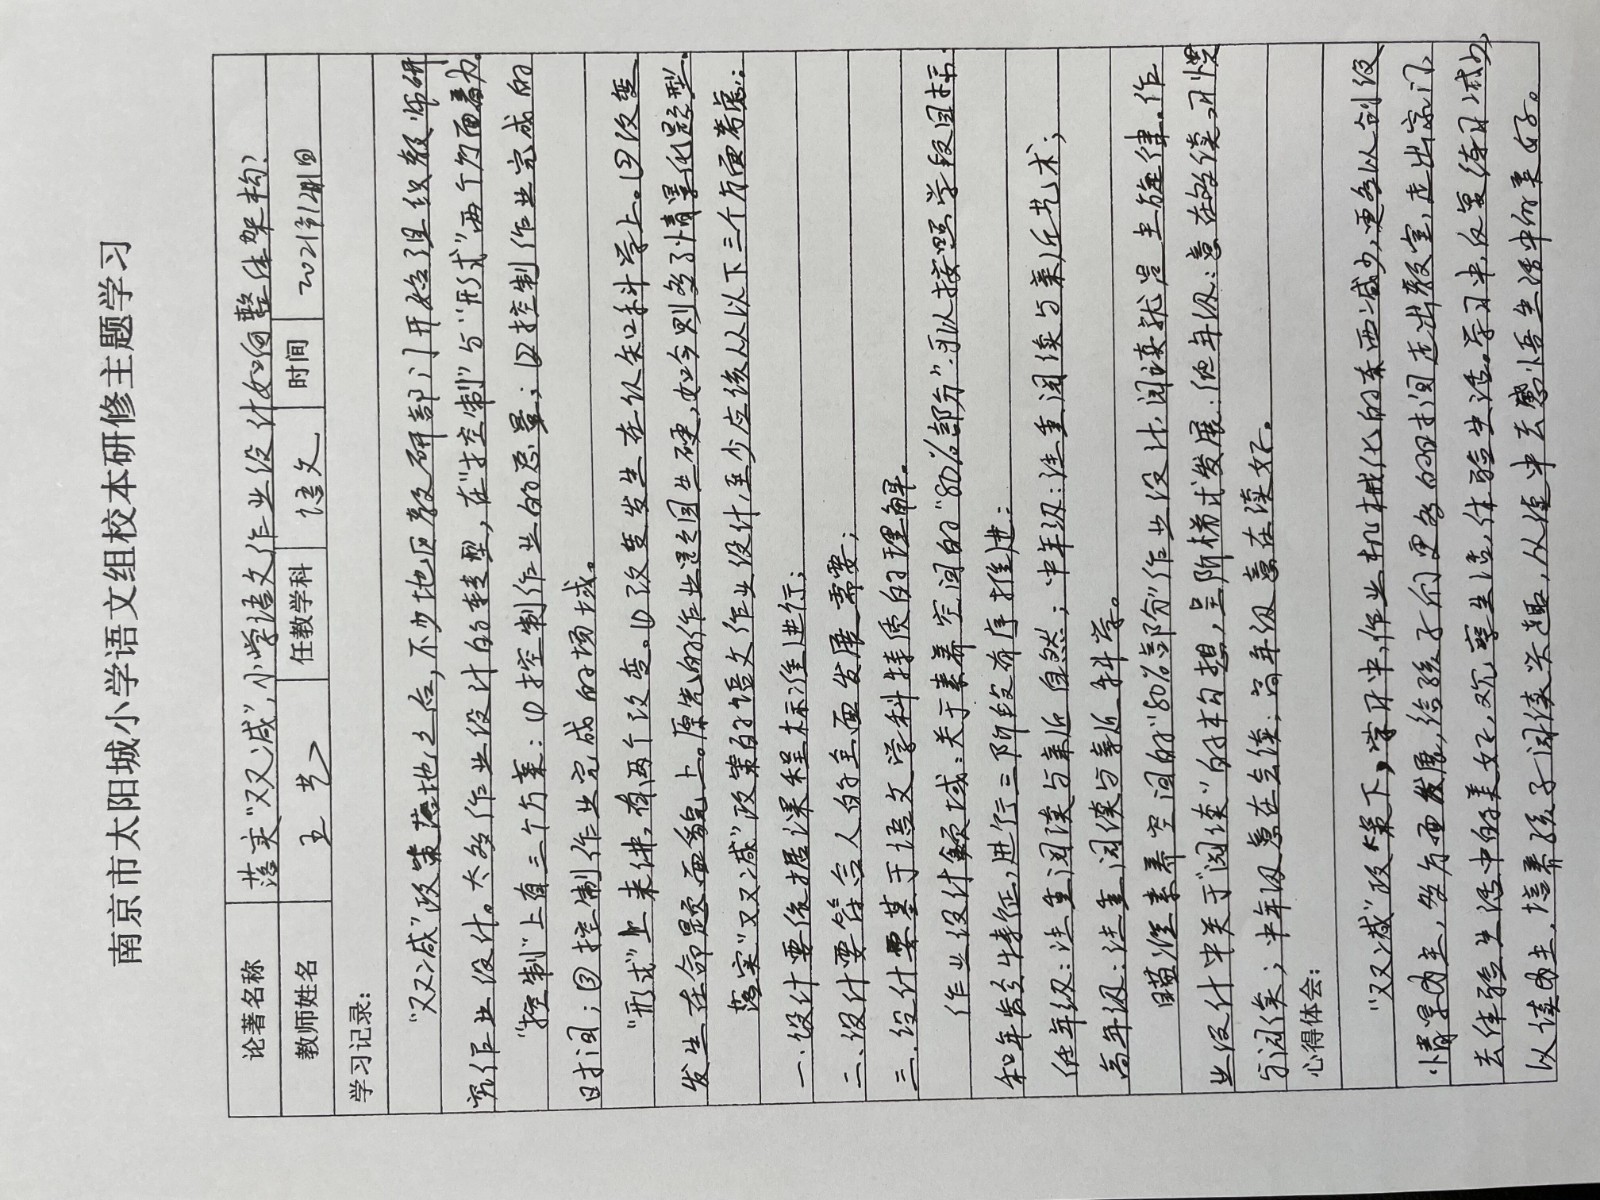 南京市太阳城小学语文组校本研修主题学习
论著名称 落实“双减”,小学语文作业设计如何整体架构?
教师姓名 王艺 任教学科 语文 时间 2021年
学习记录:
“双减”政策落地之后,不少地区教研部门开始组织教师研
究作业设计。太多作业设计的转型,在“控制”与“形式”两个方面着力
“控制”上有三个方案:①控制作业的总量;②控制作业完成的
时间;③控制作业完成的场域。
“形式”上来讲,有两个改变。①改变发生在从知科学上。②改变
发生在命题面貌上。原先的作业题固生硬,如今则多了情景化题型。
落实“双减”政策的语文作业设计,至少应该从以下三个方面考虑:
一.设计要依据课程标准进行;
二.设计要符合人的全面发展需要;
三.设计要基于语文学科特质的理解。
作业设计领域:关于素养空间的“80%部分”,可以按照学段目标
和年龄特征,进行三阶段有序推进:
低年级:注重阅读与亲近自然;中年级:注重阅读与亲近艺术;
高年级:注重阅读与亲近科学。
瞄准素养空间的“80%部分”作业设计,阅读就是主旋律。作
业设计中关于“阅读”的构想,呈阶梯式发展:低年级:意在路读,习惯
与阅读;中年级意在会读;高年级意在读好。
心得体会:
“双减”政策下,学习中,作业机械化的东西减少,更多以创设
情景为主,全方面发展,给孩子们更多的时间走出教室,走出家门
去体验生活中的美好,观察生活,体验生活。学习中,反复练习减少,
以读为主,培养孩子阅读兴趣,从读中去感悟生活中的美好。